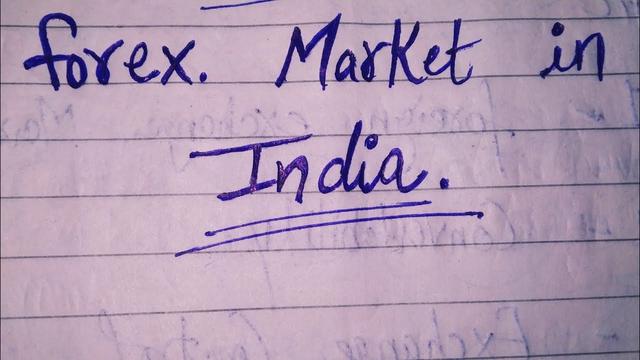 forex. Market in
India.